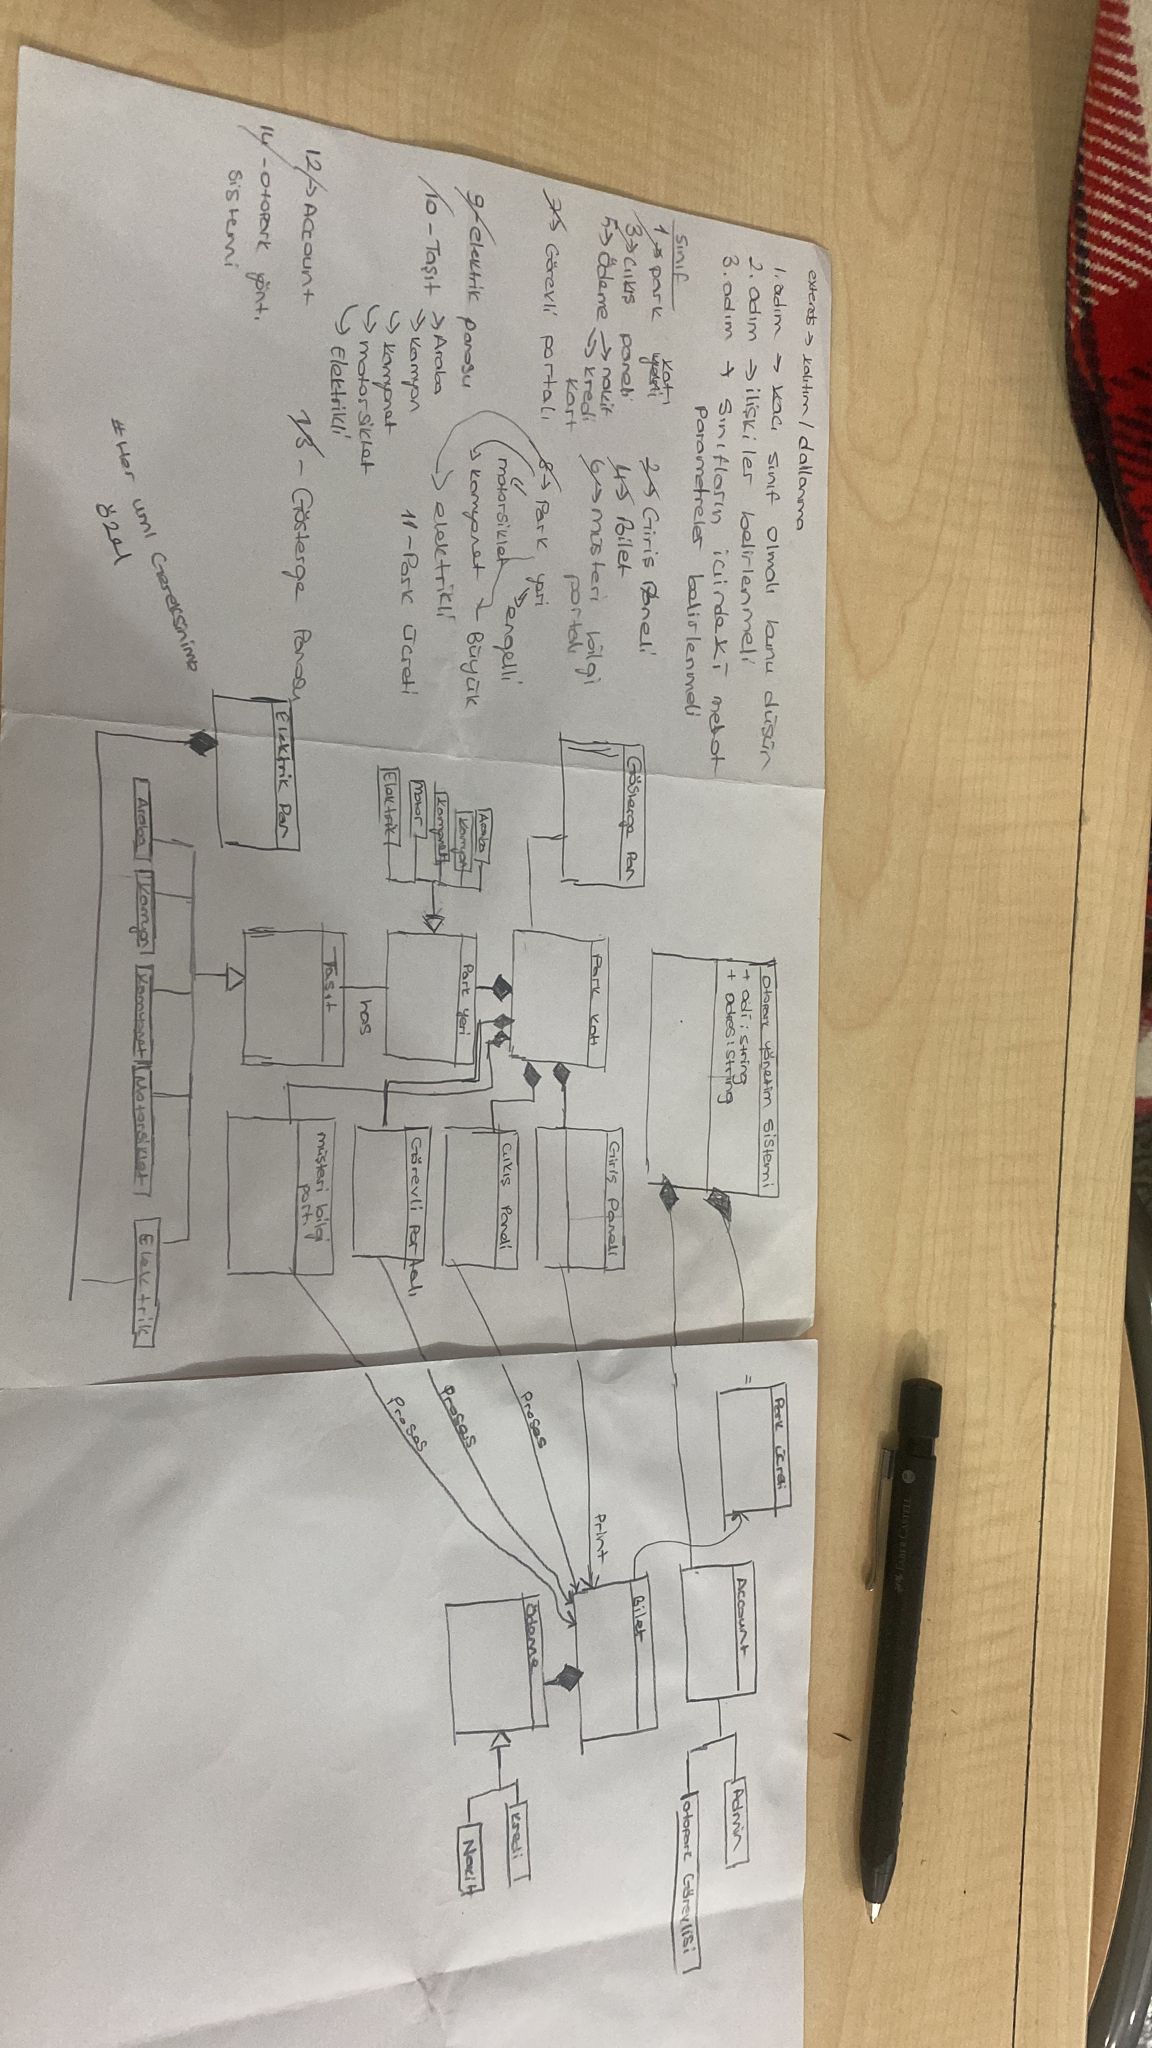 extends → kalıtım / dallanma
1. adım → kaç sınıf olmalı bunu düşün
2. adım → ilişkiler belirlenmeli
3. adım → sınıfların içindeki metot
parametreler belirlenmeli
sınıf
1 → park katı
2 → Giriş Paneli
3 → Çıkış paneli
4 → Bilet
5 → Ödeme → nakit
→ kredi
kart
6 → müşteri bilgi
portalı
7 → Görevli portalı
8 → Park yeri
motorsiklet
engelli
kamyonet
Büyük
elektrikli
9 - elektrik panosu
10 - Taşıt → Araba
→ Kamyon
→ Kamyonet
→ motorsiklet
→ Elektrikli
11 - Park ücreti
12 → Account
13 - Gösterge Panosu
14 - otopark yönt.
sistemi
# Her uml Gereksinime
özel
Otopark yönetim sistemi
+ adı : string
+ adres : string
Gösterge Pan
Park katı
Giriş Paneli
Çıkış Paneli
Görevli Portalı
müşteri bilgi
port.
Araba
Kamyon
Kamyonet
Motor
Elektrik
Park yeri
has
Taşıt
Elektrik Pan
Araba
Kamyon
Kamyonet
Motorsiklet
Elektrik
Park ücreti
=
Account
Admin
Otopark Görevlisi
Bilet
Print
Proses
Proses
Proses
Ödeme
Kredi
Nakit
FABER CASTELL